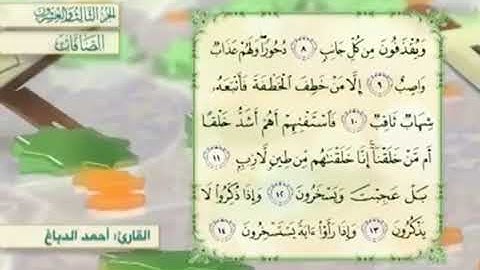 الجزء الثالث والعشرون
الصافات
وَيُقْذَفُونَ مِن كُلِّ جَانِبٍ ٨ دُحُورًا وَلَهُمْ عَذَابٌ
وَاصِبٌ ٩ إِلَّا مَنْ خَطِفَ الْخَطْفَةَ فَأَتْبَعَهُ
شِهَابٌ ثَاقِبٌ ١٠ فَاسْتَفْتِهِمْ أَهُمْ أَشَدُّ خَلْقًا
أَم مَّنْ خَلَقْنَا إِنَّا خَلَقْنَاهُم مِّن طِينٍ لَّازِبٍ ١١
بَلْ عَجِبْتَ وَيَسْخَرُونَ ١٢ وَإِذَا ذُكِّرُوا لَا
يَذْكُرُونَ ١٣ وَإِذَا رَأَوْا آيَةً يَسْتَسْخِرُونَ ١٤
القارئ: أحمد الدباغ